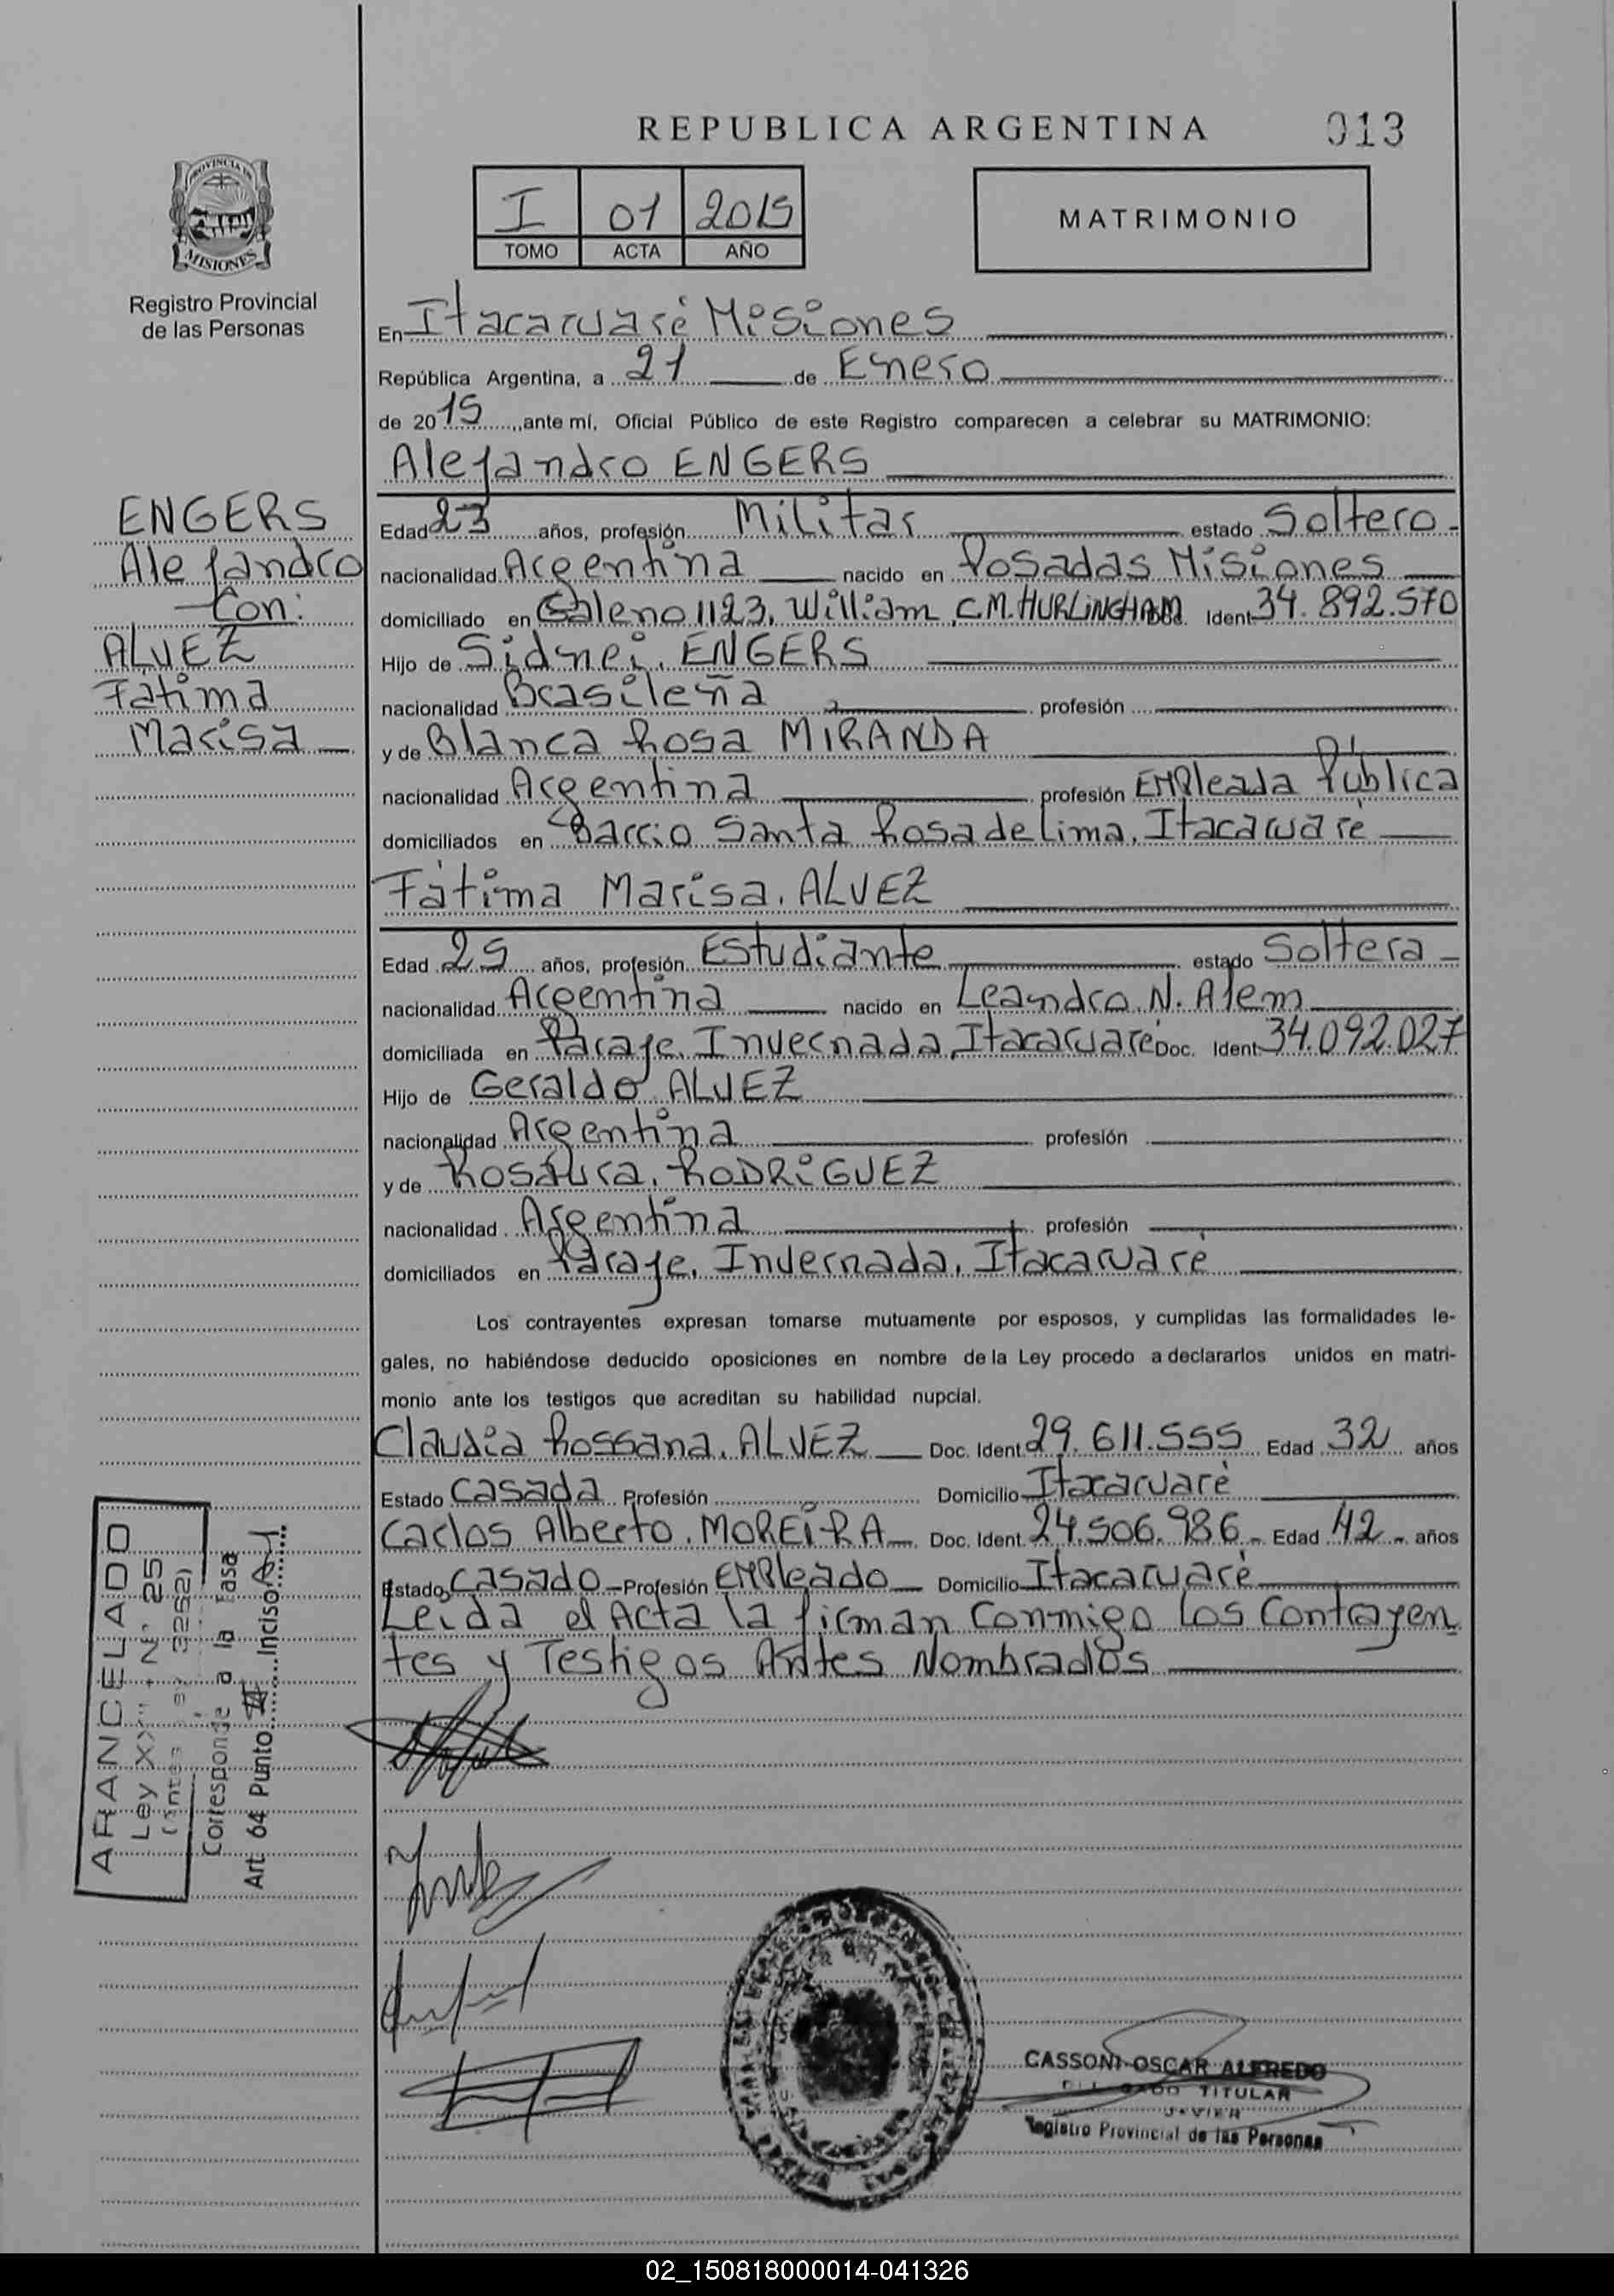 REPUBLICA ARGENTINA 013
PROVINCIA DE
MISIONES
Registro Provincial
de las Personas
I 01 2015
TOMO ACTA AÑO
MATRIMONIO
En Itacaruaré Misiones
República Argentina, a 21 de Enero
de 2015, ante mí, Oficial Público de este Registro comparecen a celebrar su MATRIMONIO:
Alejandro ENGERS
ENGERS
Alejandro
Con:
ALVEZ
Fátima
Marisa
Edad 23 años, profesión Militar estado Soltero
nacionalidad Argentina nacido en Posadas Misiones
domiciliado en Galeno 1123, William C.M. HURLINGHAM Doc. Ident 34.892.570
Hijo de Sidnei ENGERS
nacionalidad Brasileña profesión
y de Blanca Rosa MIRANDA
nacionalidad Argentina profesión EMPleada Pública
domiciliados en Barrio Santa Rosa de Lima, Itacaruaré
Fátima Marisa, ALVEZ
Edad 25 años, profesión Estudiante estado Soltera
nacionalidad Argentina nacido en Leandro N. Alem
domiciliada en Paraje, Invernada, Itacaruaré Doc. Ident 34.092.027
Hijo de Geraldo ALVEZ
nacionalidad Argentina profesión
y de Rosaura, RODRIGUEZ
nacionalidad Argentina profesión
domiciliados en Paraje, Invernada, Itacaruaré
Los contrayentes expresan tomarse mutuamente por esposos, y cumplidas las formalidades le-
gales, no habiéndose deducido oposiciones en nombre de la Ley procedo a declararlos unidos en matri-
monio ante los testigos que acreditan su habilidad nupcial.
Claudia Rossana, ALVEZ Doc. Ident. 29.611.555 Edad 32 años
Estado Casada Profesión Domicilio Itacaruaré
Carlos Alberto, MOREIRA Doc. Ident. 24.506.986 Edad 42 años
Estado Casado Profesión EMPleado Domicilio Itacaruaré
Leida el Acta la firman Conmigo los Contrayen
tes y Testigos Antes Nombrados
ARANCELADO
Ley XXII - N° 25
(Antes Ley 3252)
Corresponde a la Tasa
Art. 64 Punto Inciso
CASSONI OSCAR ALFREDO
DELEGADO TITULAR
JAVIER
Registro Provincial de las Personas
02_150818000014-041326